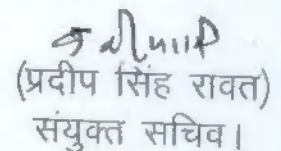 (प्रदीप सिंह रावत)
संयुक्त सचिव।